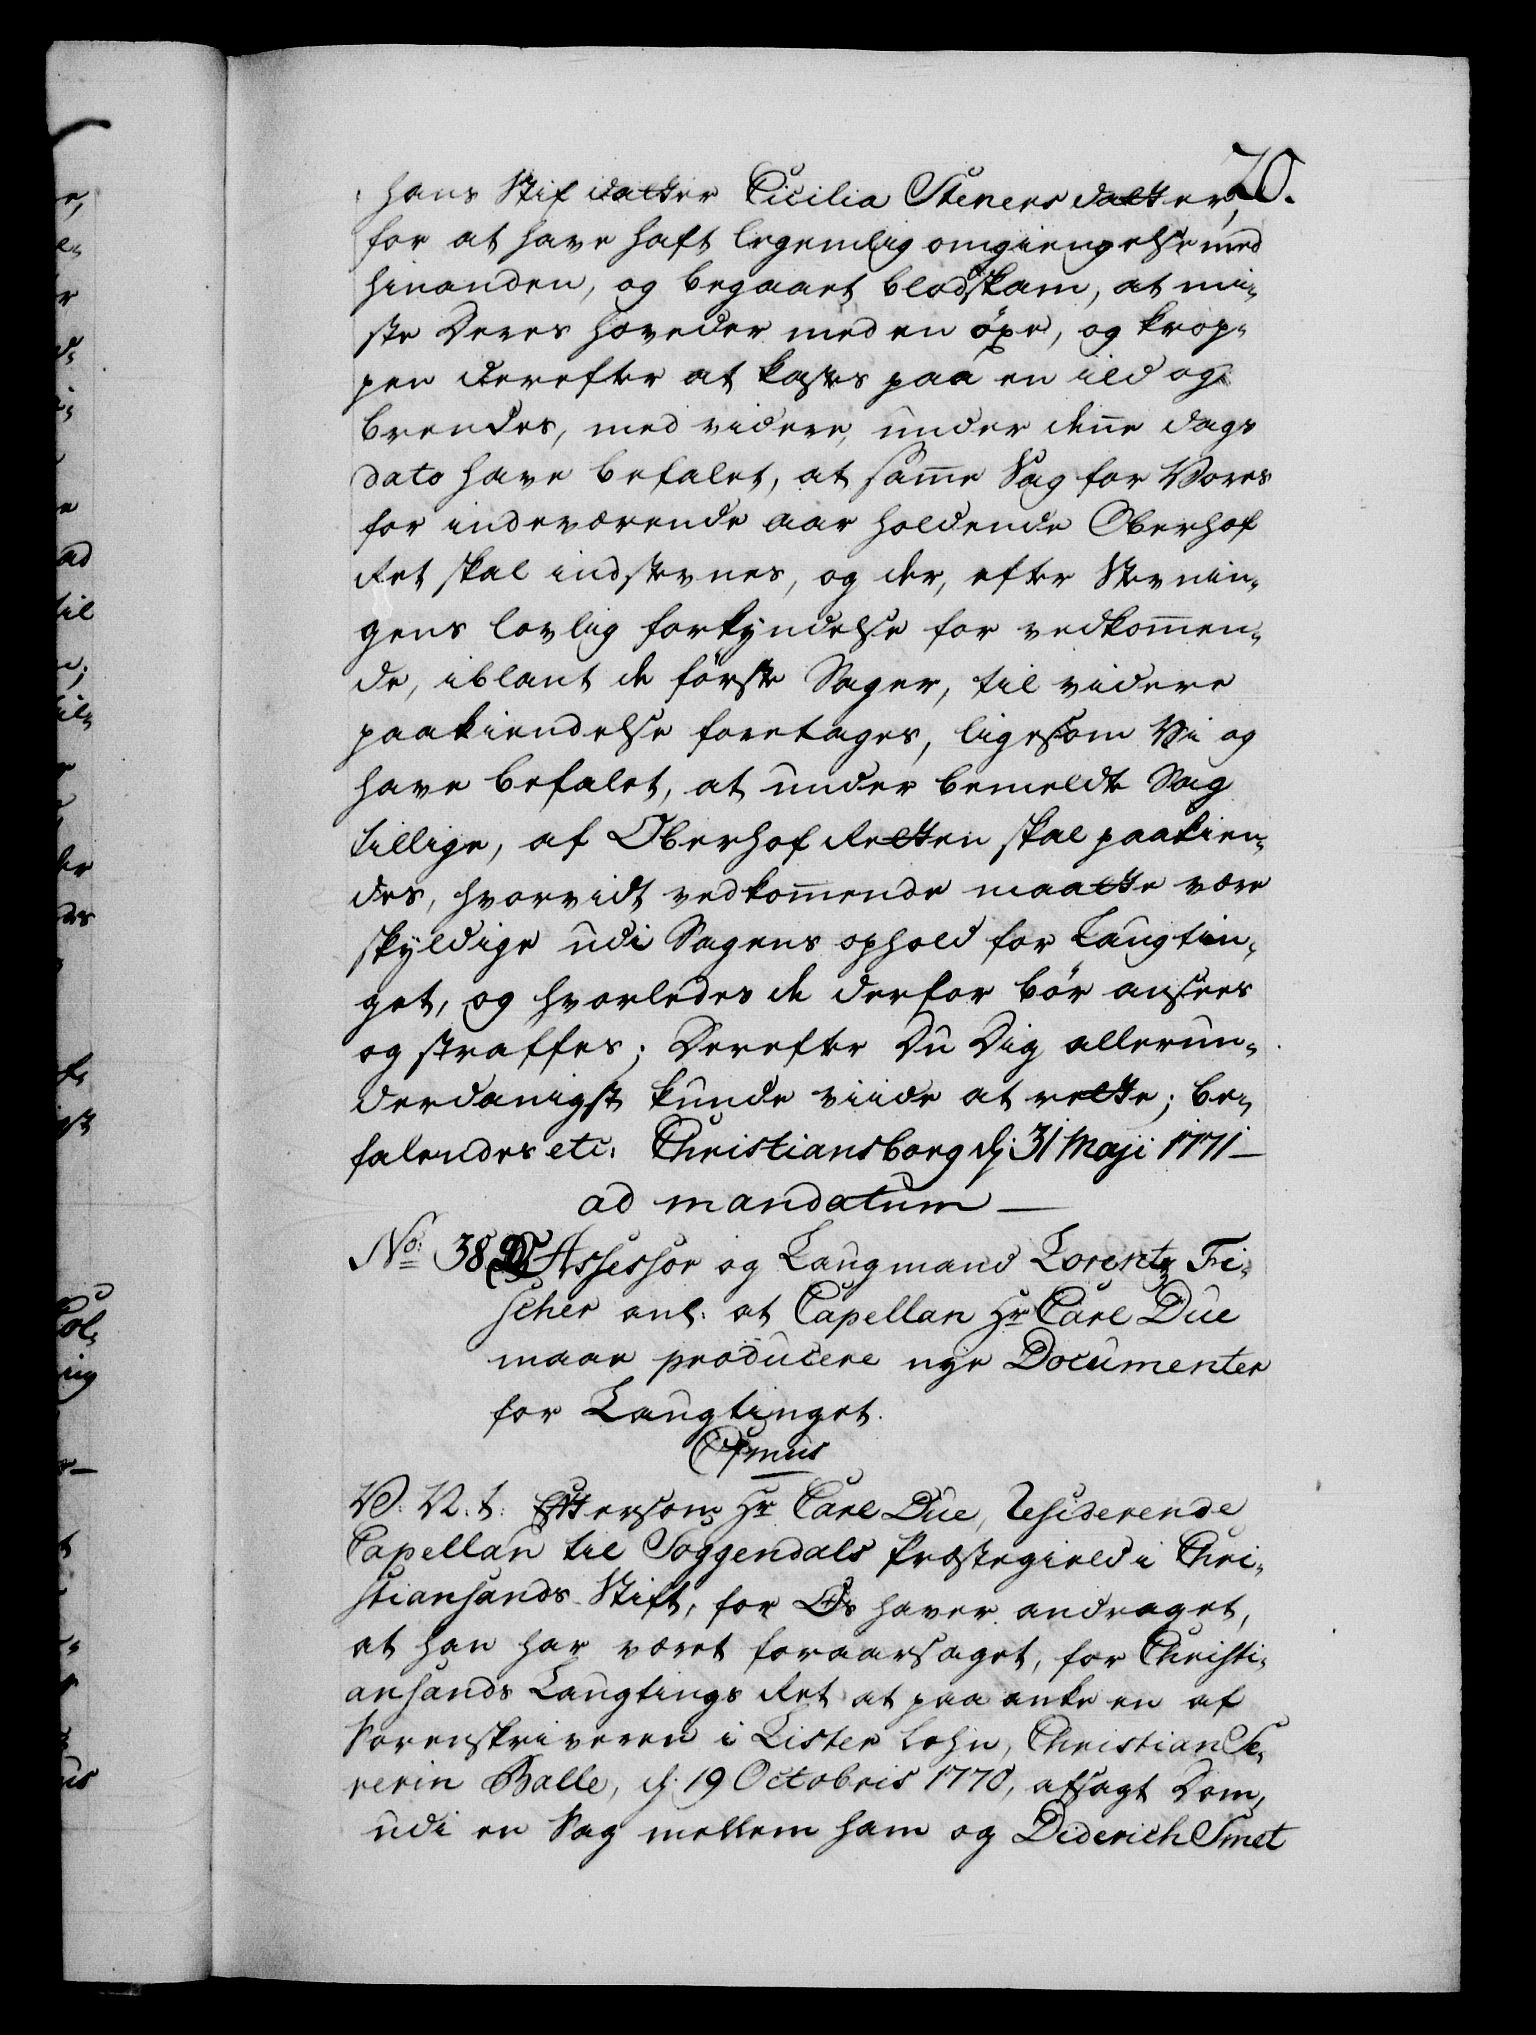 20.
hans Stif datter Cicilia Steners datter,
for at have haft legemlig omgiengelse med
hinanden, og begaaet blodskam, at mi-
ste Deres hoveder med en öxe, og krop-
pen derefter at kastes paa en ild og
brendes, med videre, under denne dags
dato have befalet, at samme Sag for Vores
for indeværende aar holdende Oberhof
Ret skal indstevnes, og der, efter Stevnin-
gens lovlig forkyndelse for vedkommen-
de, iblant de förste Sager, til videre
paakiendelse foretages, ligesom Vi og
have befalet, at under bemeldte Sag
tillige, af Oberhof Retten skal paakien-
des, hvorvidt vedkommende maatte være
skyldige udi Sagens ophold for Laugtin-
get, og hvorledes de derfor bör ansees
og straffes; Derefter Du Dig allerun-
derdanigst kunde viide at rette; be-
falendes etc: Christiansborg d: 31 Maji 1771 —
ad mandatum —
No: 38 Assessor og Laugmand Lorentz Fi-
scher anl: at Capellan Hr Carl Due
maae producere nye Documenter
for Laugtinget.
Cmus
V. V. t: Eftersom Hr Carl Due, Residerende
Capellan til Soggendals Præstegield i Chri-
stiansands Stift, for Os haver andraget,
at han har været foraarsaget, for Christi-
ansands Laugtings Ret at paa anke en af
Sorenskriveren i Lister Lehn, Christian Se-
verin Balle, d: 19 Octobris 1770, afsagt Dom,
udi en Sag mellem ham og Diderich Smet